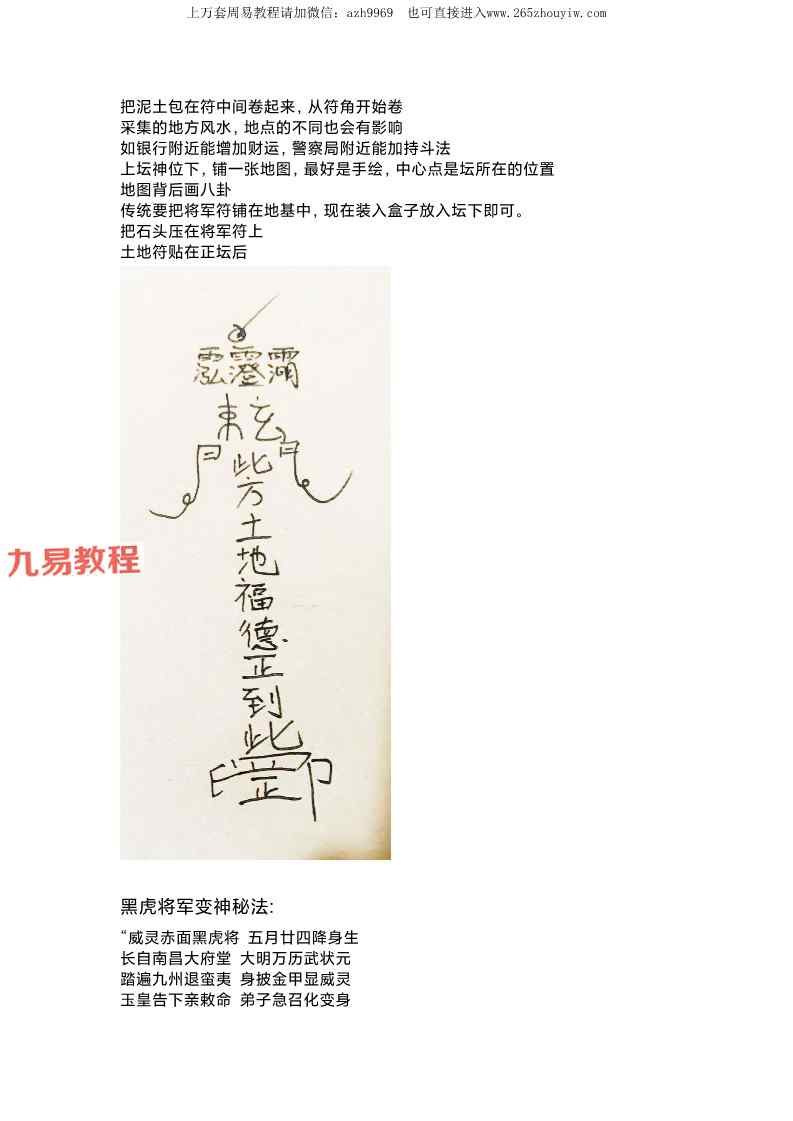 上万套周易教程请加微信：azh9969　也可直接进入www.265zhouyiw.com
把泥土包在符中间卷起来，从符角开始卷
采集的地方风水，地点的不同也会有影响
如银行附近能增加财运，警察局附近能加持斗法
上坛神位下，铺一张地图，最好是手绘，中心点是坛所在的位置
地图背后画八卦
传统要把将军符铺在地基中，现在装入盒子放入坛下即可。
把石头压在将军符上
土地符贴在正坛后
此
方
土
地
福
德
正
到
此
九易教程
黑虎将军变神秘法:
“威灵赤面黑虎将 五月廿四降身生
长自南昌大府堂 大明万历武状元
踏遍九州退蛮夷 身披金甲显威灵
玉皇告下亲敕命 弟子急召化变身